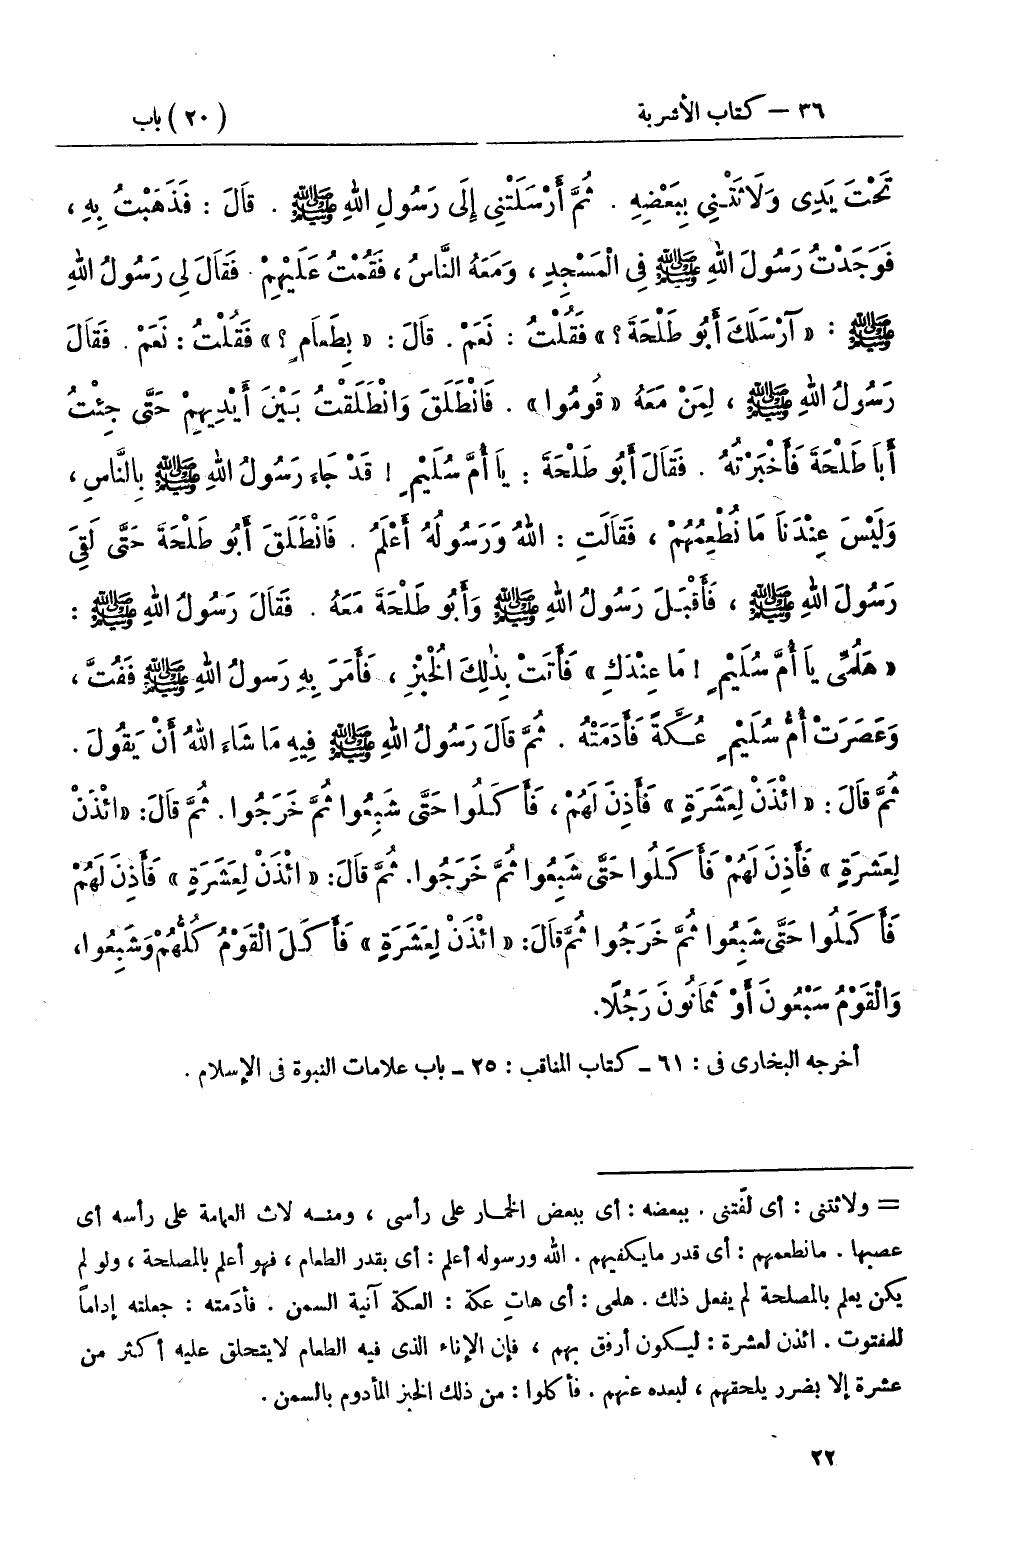 ٣٦ – كتاب الأشربة (٢٠) باب
تَحْتَ يَدِى وَلَاثَتْنِي بِبَعْضِهِ . ثُمَّ أَرْسَلَتْنِي إِلَى رَسُولِ اللهِ ﷺ . قَالَ : فَذَهَبْتُ بِهِ ،
فَوَجَدْتُ رَسُولَ اللهِ ﷺ فِى الْمَسْجِدِ ، وَمَعَهُ النَّاسُ ، فَقُمْتُ عَلَيْهِمْ . فَقَالَ لِى رَسُولُ اللهِ
ﷺ : « آرْسَلَكَ أَبُو طَلْحَةَ ؟ » فَقُلْتُ : نَعَمْ . قَالَ : « بِطَعَامٍ ؟ » فَقُلْتُ : نَعَمْ . فَقَالَ
رَسُولُ اللهِ ﷺ ، لِمَنْ مَعَهُ « قُومُوا » . فَانْطَلَقَ وَانْطَلَقْتُ بَيْنَ أَيْدِيهِمْ حَتَّى جِئْتُ
أَبَا طَلْحَةَ فَأَخْبَرْتُهُ . فَقَالَ أَبُو طَلْحَةَ : يَا أُمَّ سُلَيْمٍ ! قَدْ جَاءَ رَسُولُ اللهِ ﷺ بِالنَّاسِ ،
وَلَيْسَ عِنْدَنَا مَا نُطْعِمُهُمْ ، فَقَالَتِ : اللهُ وَرَسُولُهُ أَعْلَمُ . فَانْطَلَقَ أَبُو طَلْحَةَ حَتَّى لَقِىَ
رَسُولَ اللهِ ﷺ ، فَأَقْبَلَ رَسُولُ اللهِ ﷺ وَأَبُو طَلْحَةَ مَعَهُ . فَقَالَ رَسُولُ اللهِ ﷺ :
« هَلُمِّى يَا أُمَّ سُلَيْمٍ ! مَا عِنْدَكِ » فَأَتَتْ بِذٰلِكَ الْخُبْزِ ، فَأَمَرَ بِهِ رَسُولُ اللهِ ﷺ فَفُتَّ ،
وَعَصَرَتْ أُمُّ سُلَيْمٍ عُكَّةً فَأَدَمَتْهُ . ثُمَّ قَالَ رَسُولُ اللهِ ﷺ فِيهِ مَا شَاءَ اللهُ أَنْ يَقُولَ .
ثُمَّ قَالَ : « ائْذَنْ لِعَشَرَةٍ » فَأَذِنَ لَهُمْ ، فَأَكَلُوا حَتَّى شَبِعُوا ثُمَّ خَرَجُوا . ثُمَّ قَالَ : « ائْذَنْ
لِعَشَرَةٍ » فَأَذِنَ لَهُمْ فَأَكَلُوا حَتَّى شَبِعُوا ثُمَّ خَرَجُوا . ثُمَّ قَالَ : « ائْذَنْ لِعَشَرَةٍ » فَأَذِنَ لَهُمْ
فَأَكَلُوا حَتَّى شَبِعُوا ثُمَّ خَرَجُوا ثُمَّ قَالَ : « ائْذَنْ لِعَشَرَةٍ » فَأَكَلَ الْقَوْمُ كُلُّهُمْ وَشَبِعُوا ،
وَالْقَوْمُ سَبْعُونَ أَوْ ثَمَانُونَ رَجُلًا.
أخرجه البخارى فى : ٦١ – كتاب المناقب : ٢٥ – باب علامات النبوة فى الإسلام .
= ولاثتنى : أى لفّتنى . ببعضه : أى ببعض الخمار على رأسى ، ومنه لاث العمامة على رأسه أى
عصبها . مانطعمهم : أى قدر مايكفيهم . الله ورسوله أعلم : أى بقدر الطعام ، فهو أعلم بالمصلحة ، ولو لم
يكن يعلم بالمصلحة لم يفعل ذلك . هلمى : أى هاتِ عكة : العكة آنية السمن . فأدَمته : جعلته إداماً
للمفتوت . ائذن لعشرة : ليكون أرفق بهم ، فإن الإناء الذى فيه الطعام لايتحلق عليه أكثر من
عشرة إلا بضرر يلحقهم ، لبعده عنهم . فأكلوا : من ذلك الخبز المأدوم بالسمن .
٢٢